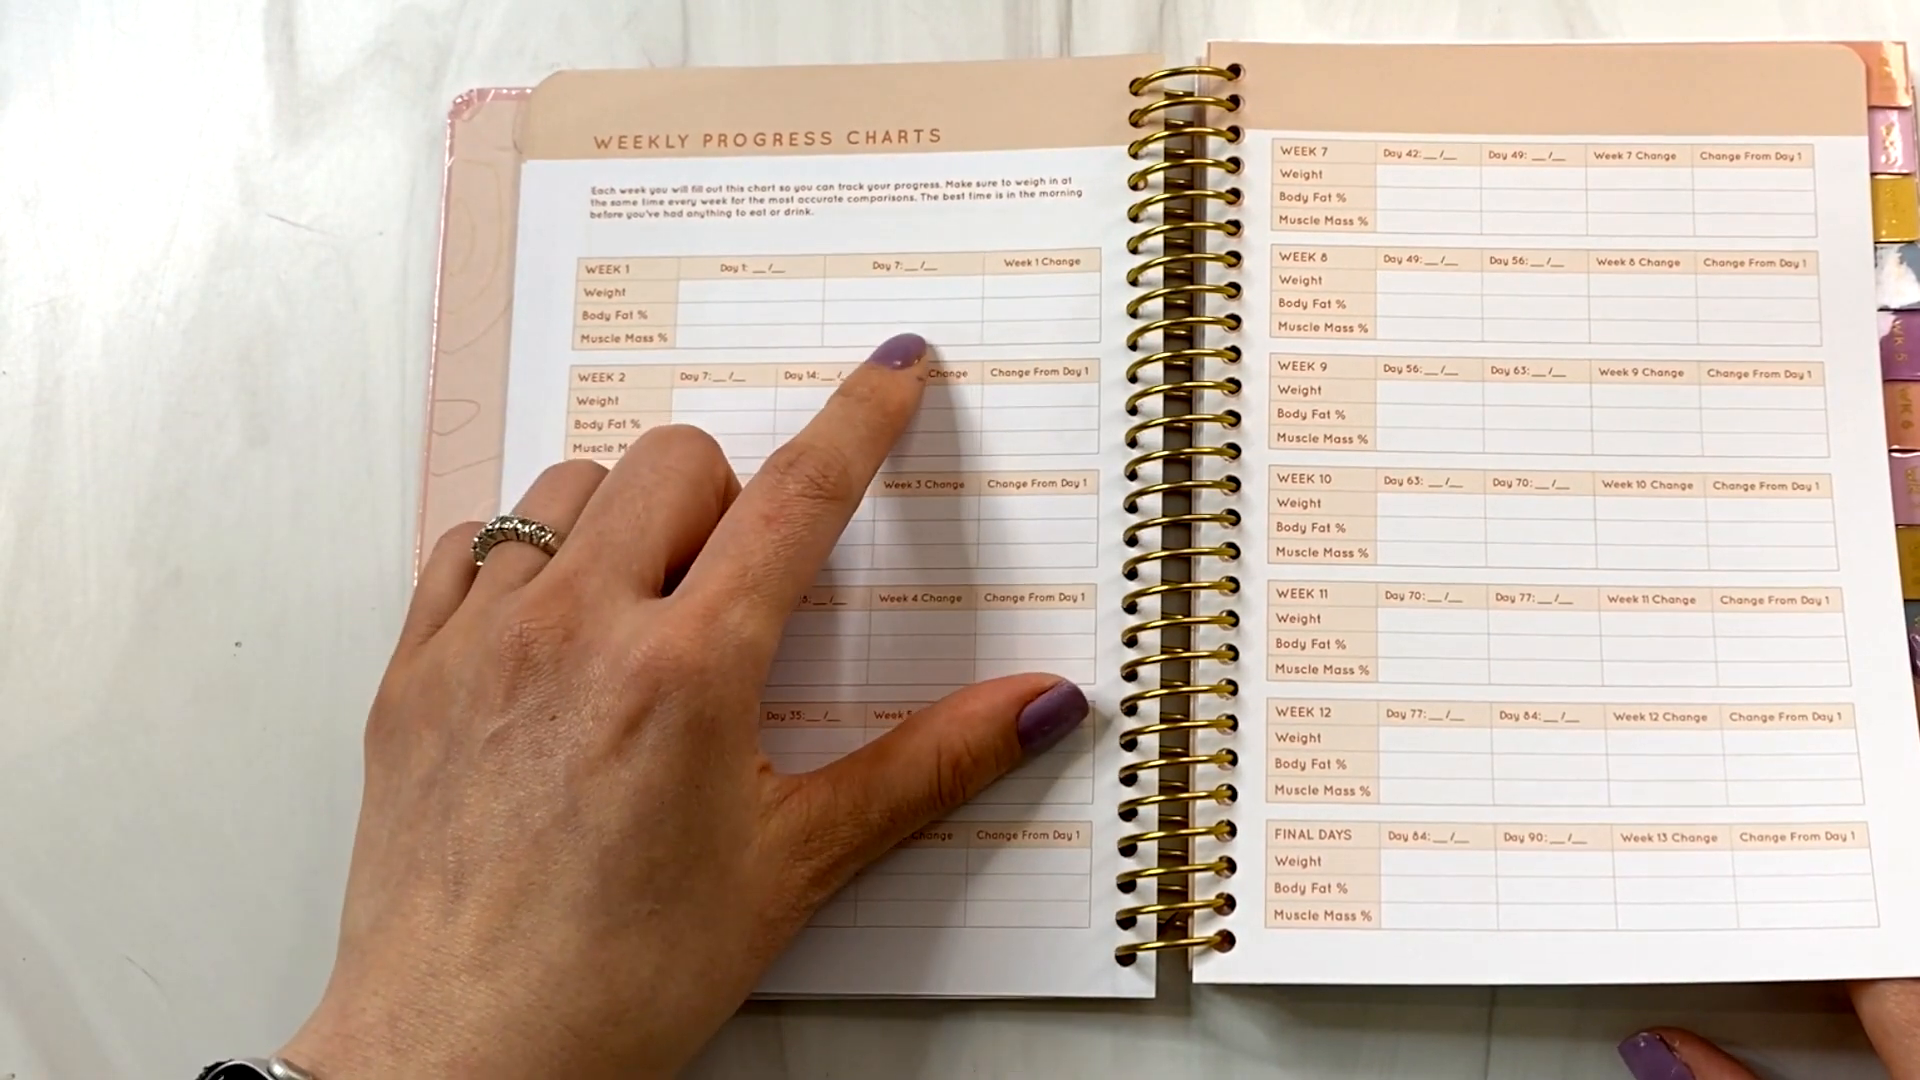 WEEKLY PROGRESS CHARTS
Each week you will fill out this chart so you can track your progress. Make sure to weigh in at
the same time every week for the most accurate comparisons. The best time is in the morning
before you've had anything to eat or drink.
WEEK 1 Day 1: __/__ Day 7: __/__ Week 1 Change
Weight
Body Fat %
Muscle Mass %
WEEK 2 Day 7: __/__ Day 14: __/ Change Change From Day 1
Weight
Body Fat %
Muscle
Week 3 Change Change From Day 1
8: __/__ Week 4 Change Change From Day 1
Day 35: __/__ Week 5
Change Change From Day 1
WEEK 7 Day 42: __/__ Day 49: __/__ Week 7 Change Change From Day 1
Weight
Body Fat %
Muscle Mass %
WEEK 8 Day 49: __/__ Day 56: __/__ Week 8 Change Change From Day 1
Weight
Body Fat %
Muscle Mass %
WEEK 9 Day 56: __/__ Day 63: __/__ Week 9 Change Change From Day 1
Weight
Body Fat %
Muscle Mass %
WEEK 10 Day 63: __/__ Day 70: __/__ Week 10 Change Change From Day 1
Weight
Body Fat %
Muscle Mass %
WEEK 11 Day 70: __/__ Day 77: __/__ Week 11 Change Change From Day 1
Weight
Body Fat %
Muscle Mass %
WEEK 12 Day 77: __/__ Day 84: __/__ Week 12 Change Change From Day 1
Weight
Body Fat %
Muscle Mass %
FINAL DAYS Day 84: __/__ Day 90: __/__ Week 13 Change Change From Day 1
Weight
Body Fat %
Muscle Mass %
WK 5
WK 6